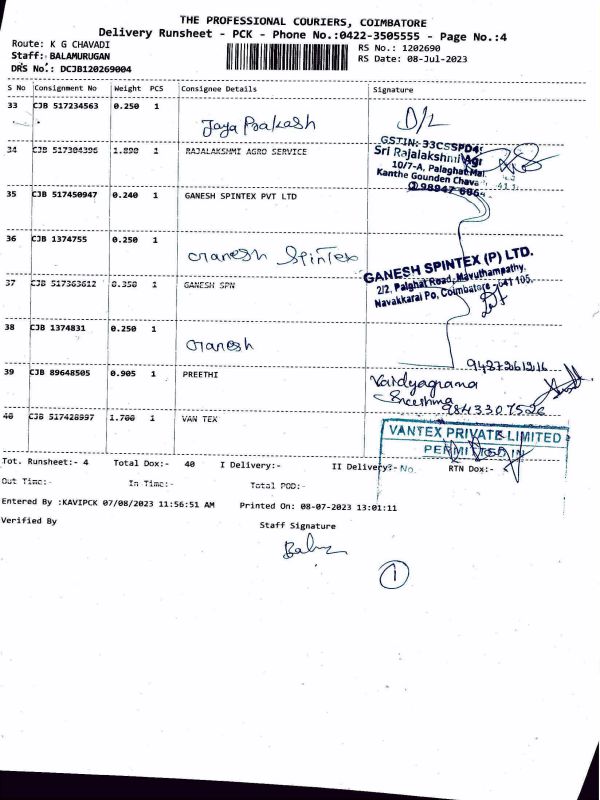 THE PROFESSIONAL COURIERS, COIMBATORE
Delivery Runsheet - PCK - Phone No.:0422-3505555 - Page No.:4
Route: K G CHAVADI
RS No.: 1202690
Staff: BALAMURUGAN
RS Date: 08-Jul-2023
DRS No.: DCJB120269004
S No Consignment No Weight PCS Consignee Details Signature
33 CJB 517234563 0.250 1
Jaya Prakash D/L
GSTIN: 33CSSPD4
34 CJB 517304396 1.890 1 RAJALAKSHMI AGRO SERVICE
Sri Rajalakshmi Agr
10/7-A, Palaghat Mai
Kanthe Gounden Chava
98947
35 CJB 517450947 0.240 1 GANESH SPINTEX PVT LTD
36 CJB 1374755 0.250 1
Ganesh Spintex
GANESH SPINTEX (P) LTD.
2/2, Palghat Road, Mavuthampathy,
Navakkarai Po, Coimbatore - 641 105.
37 CJB 517363612 0.350 1 GANESH SPN
38 CJB 1374831 0.250 1
Ganesh
39 CJB 89648505 0.905 1 PREETHI
Vaidyagrama
9843307526
40 CJB 517428997 1.700 1 VAN TEX
VANTEX PRIVATE LIMITED
PERMITTED IN
Tot. Runsheet:- 4 Total Dox:- 40 I Delivery:- II Delivery:- No. RTN Dox:-
Out Time:- In Time:- Total POD:-
Entered By :KAVIPCK 07/08/2023 11:56:51 AM Printed On: 08-07-2023 13:01:11
Verified By Staff Signature
1